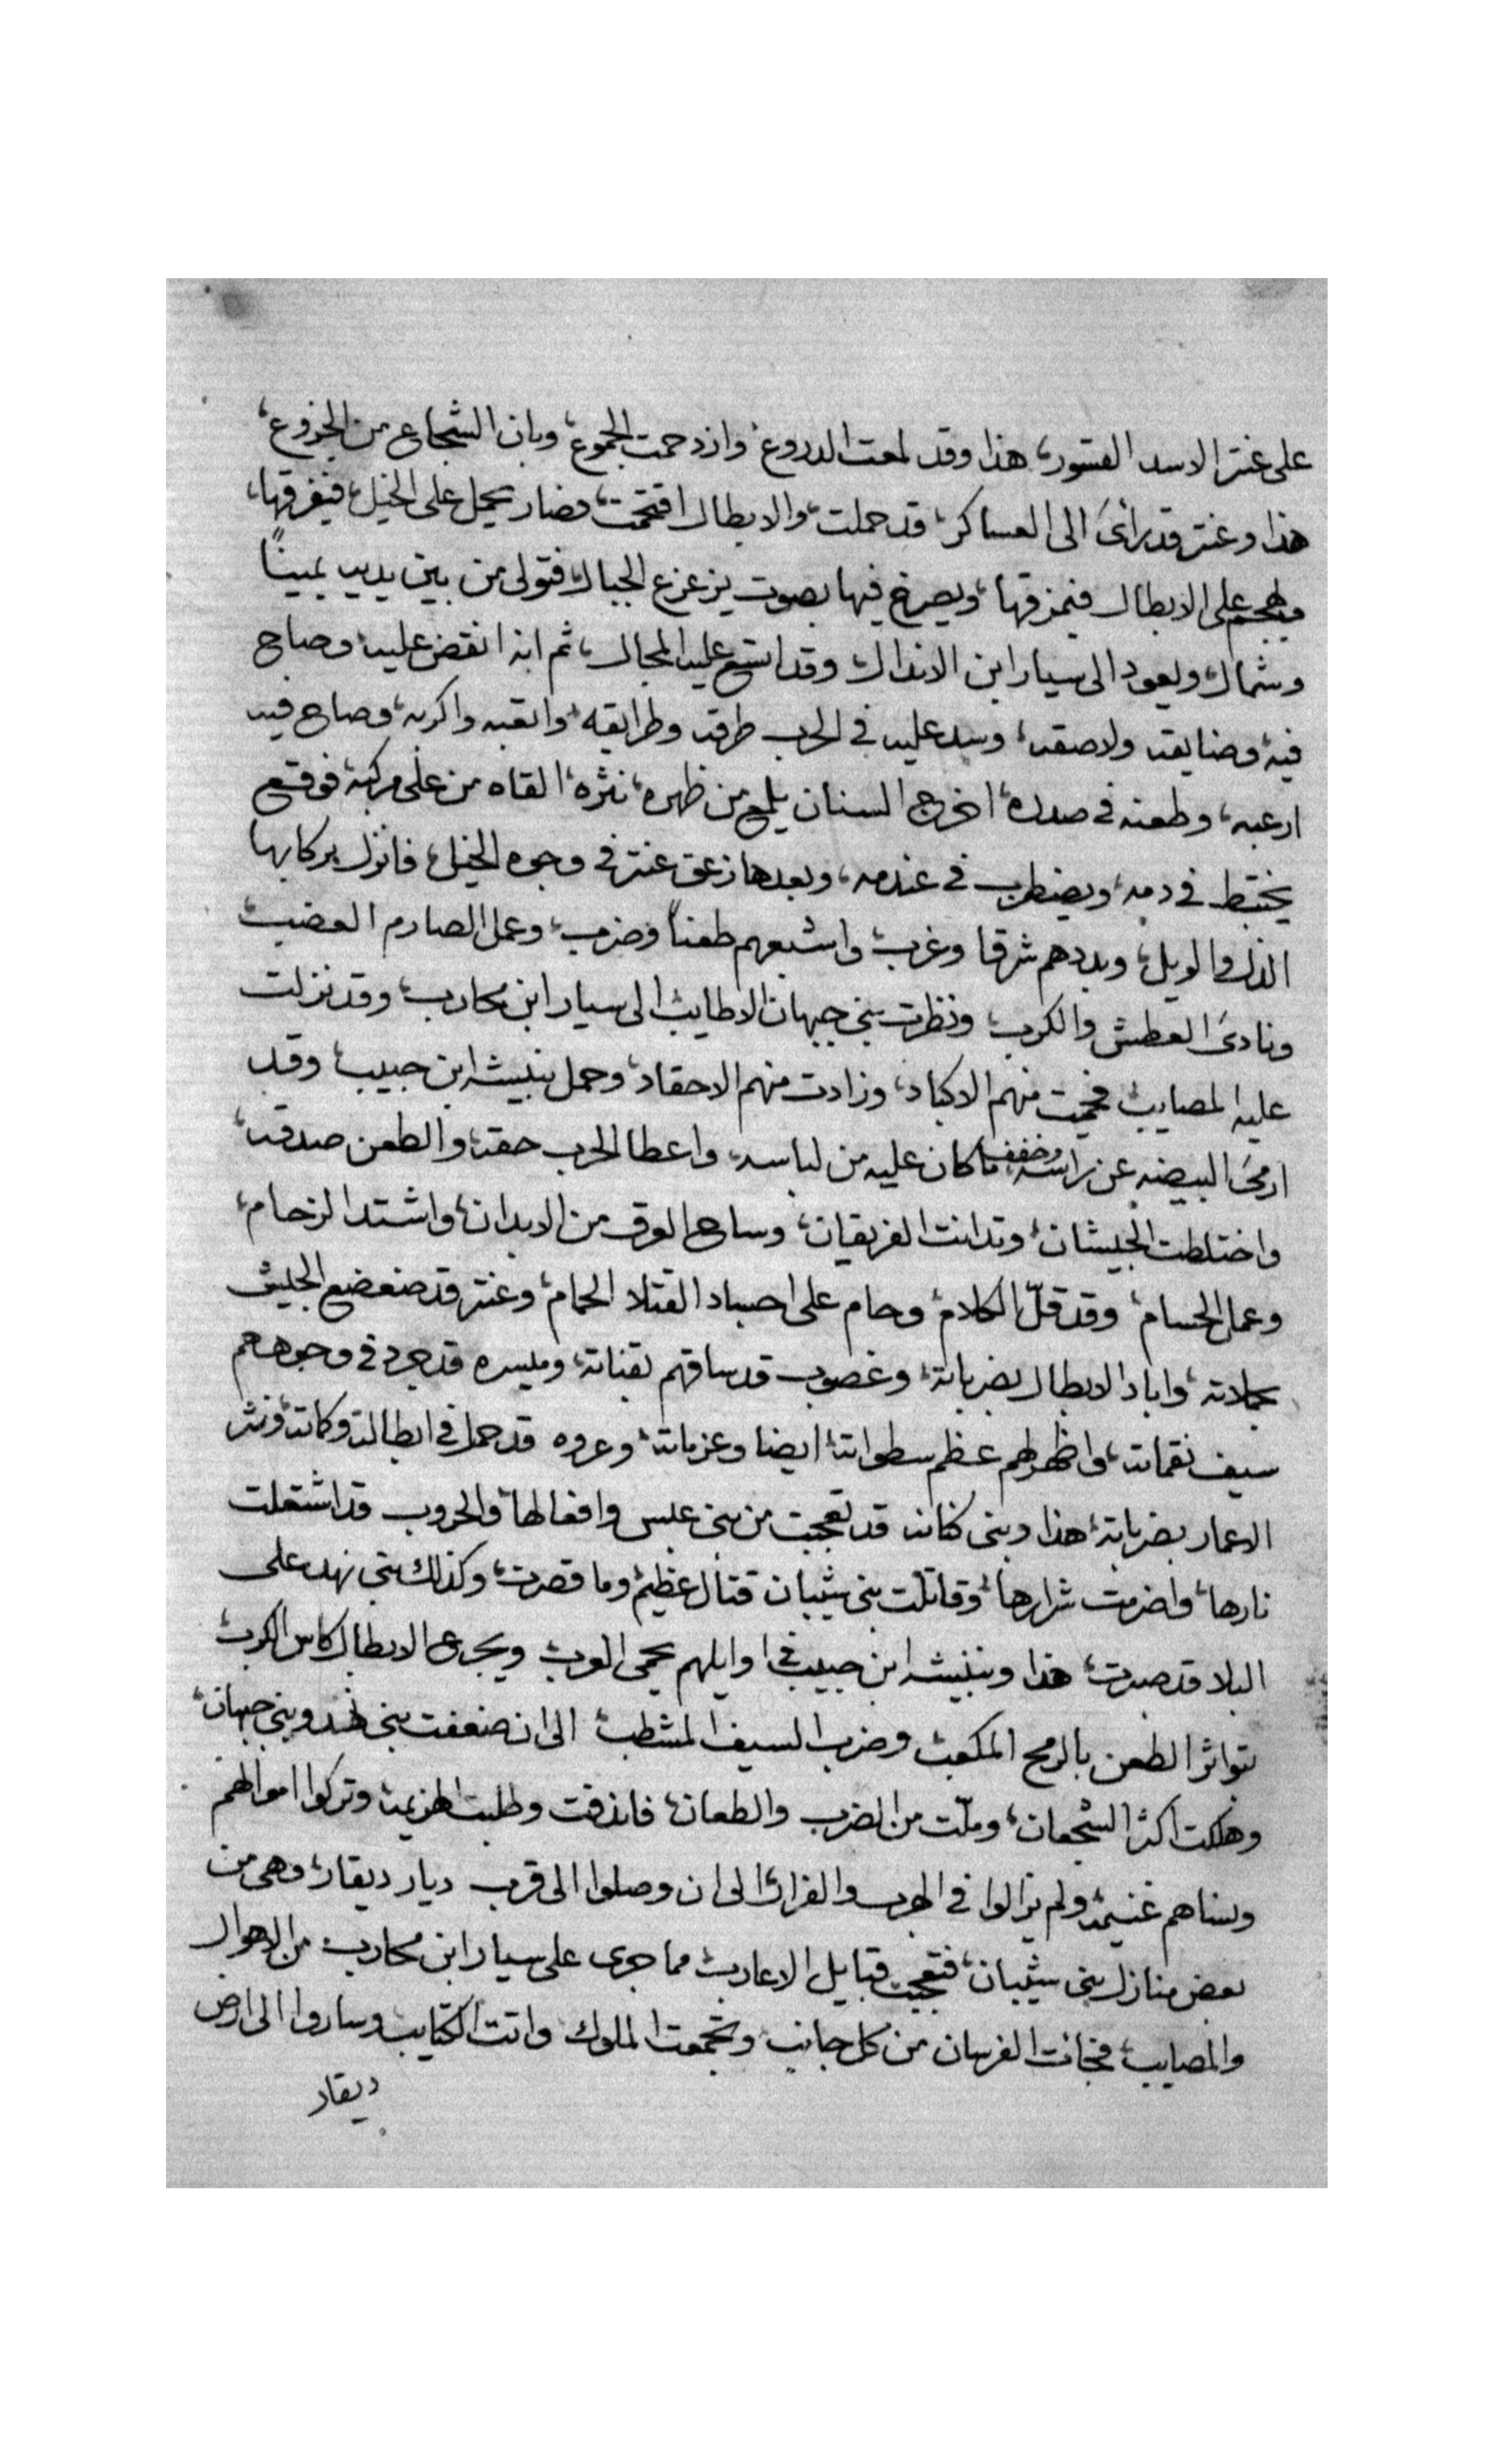 على عنتر الاسد القسور، هذا وقد لمعت الدروع، وازدحمت الجموع، وبان الشجاع من الجزوع،
هذا وعنتر قد رأى الى العساكر، قد حملت، والابطال اقتحمت، فصار يحمل على الخيل، فيفرقها،
ويهجم على الابطال فيمزقها، ويصرخ فيها بصوت يزعزع الجبال، فتولى من بين يديه يمينًا
وشمال، ويعود الى سيار ابن الاندال، وقد اتسع عليه المجال، ثم انه انقض عليه، وصاح
فيه، وضايقه ولاصقه، وسد عليه في الحرب طرقه وطرايقه، واتعبه واكربه، وصاح فيه
ارعبه، وطعنه في صدره، اخرج السنان يلمع من ظهره، نثره، القاه من على مركبه، فوقع
يختبط في دمه، ويضطرب في عندمه، وبعدها زعق عنتر في وجوه الخيل، فانزل بركابها
الذل والويل، وبددهم شرقا وغرب، واشبعهم طعناً وضرب، وعمل الصارم العضب،
ونادى العطش والكرب، ونظرت بنى جيهان الاطايب، الى سيار ابن محارب، وقد نزلت
عليه المصايب، فحميت منهم الاكباد، وزادت منهم الاحقاد، وحمل ابن حبيب، وقد
ارمى البيضه عن راسه، وخفف ما كان عليه من لباسه، واعطا الحرب حقه، والطعن صدقه،
واختلطت الجيشان، وتدانت الفريقان، وساح العرق من الابدان، واشتد الزحام،
وعمل الحسام، وقد قلّ الكلام، وحام على اجساد القتلا الحمام، وعنتر قد ضعضع الجيش
بحملاته، واباد الابطال بضرباته، وغصوب قد ساقهم بقناته، وميسره قد جرد في وجوههم
سيف نقماته، واظهر لهم عظم سطواته، ايضا وعزماته، وعروه قد حمل في ابطاله وكماته، ونثر
الاعمار بضرباته، هذا وبنى كنانه قد تعجبت من بنى عبس وافعالها، والحروب قد اشتعلت
نارها، واضرمت شرارها، وقاتلت بنى شيبان قتال عظيم، وما قصرت، وكذلك بنى نهد على
البلا قد صبرت، هذا ابن حبيب في اوايلهم يحمى العرب، ويجرع الابطال كاس الكرب،
بتواتر الطعن بالرمح المكعب، وضرب السيف المشطب، الى ان ضعفت بنى نهد وبنى جيهان،
وهلكت اكثر الشجعان، وملّت من الضرب والطعان، فاندفقت وطلبت الهزيمه، وتركوا اموالهم
ونساهم غنيمه، ولم يزالوا في الهرب والفرار، الى ان وصلوا الى قرب ديار ديقار، وهى من
بعض منازل بنى شيبان، فتعجبت قبايل الاعارب، مما جرى على سيار ابن محارب، من الاهوال
والمصايب، فجائت الفرسان من كل جانب، وتجمعت الملوك، واتت الكتايب، وساروا الى ارض
ديقار